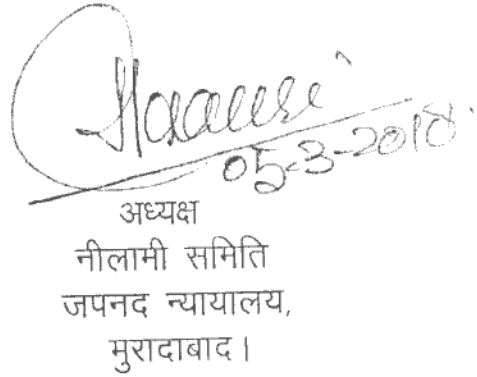 05-3-2018
अध्यक्ष
नीलामी समिति
जपनद न्यायालय,
मुरादाबाद।